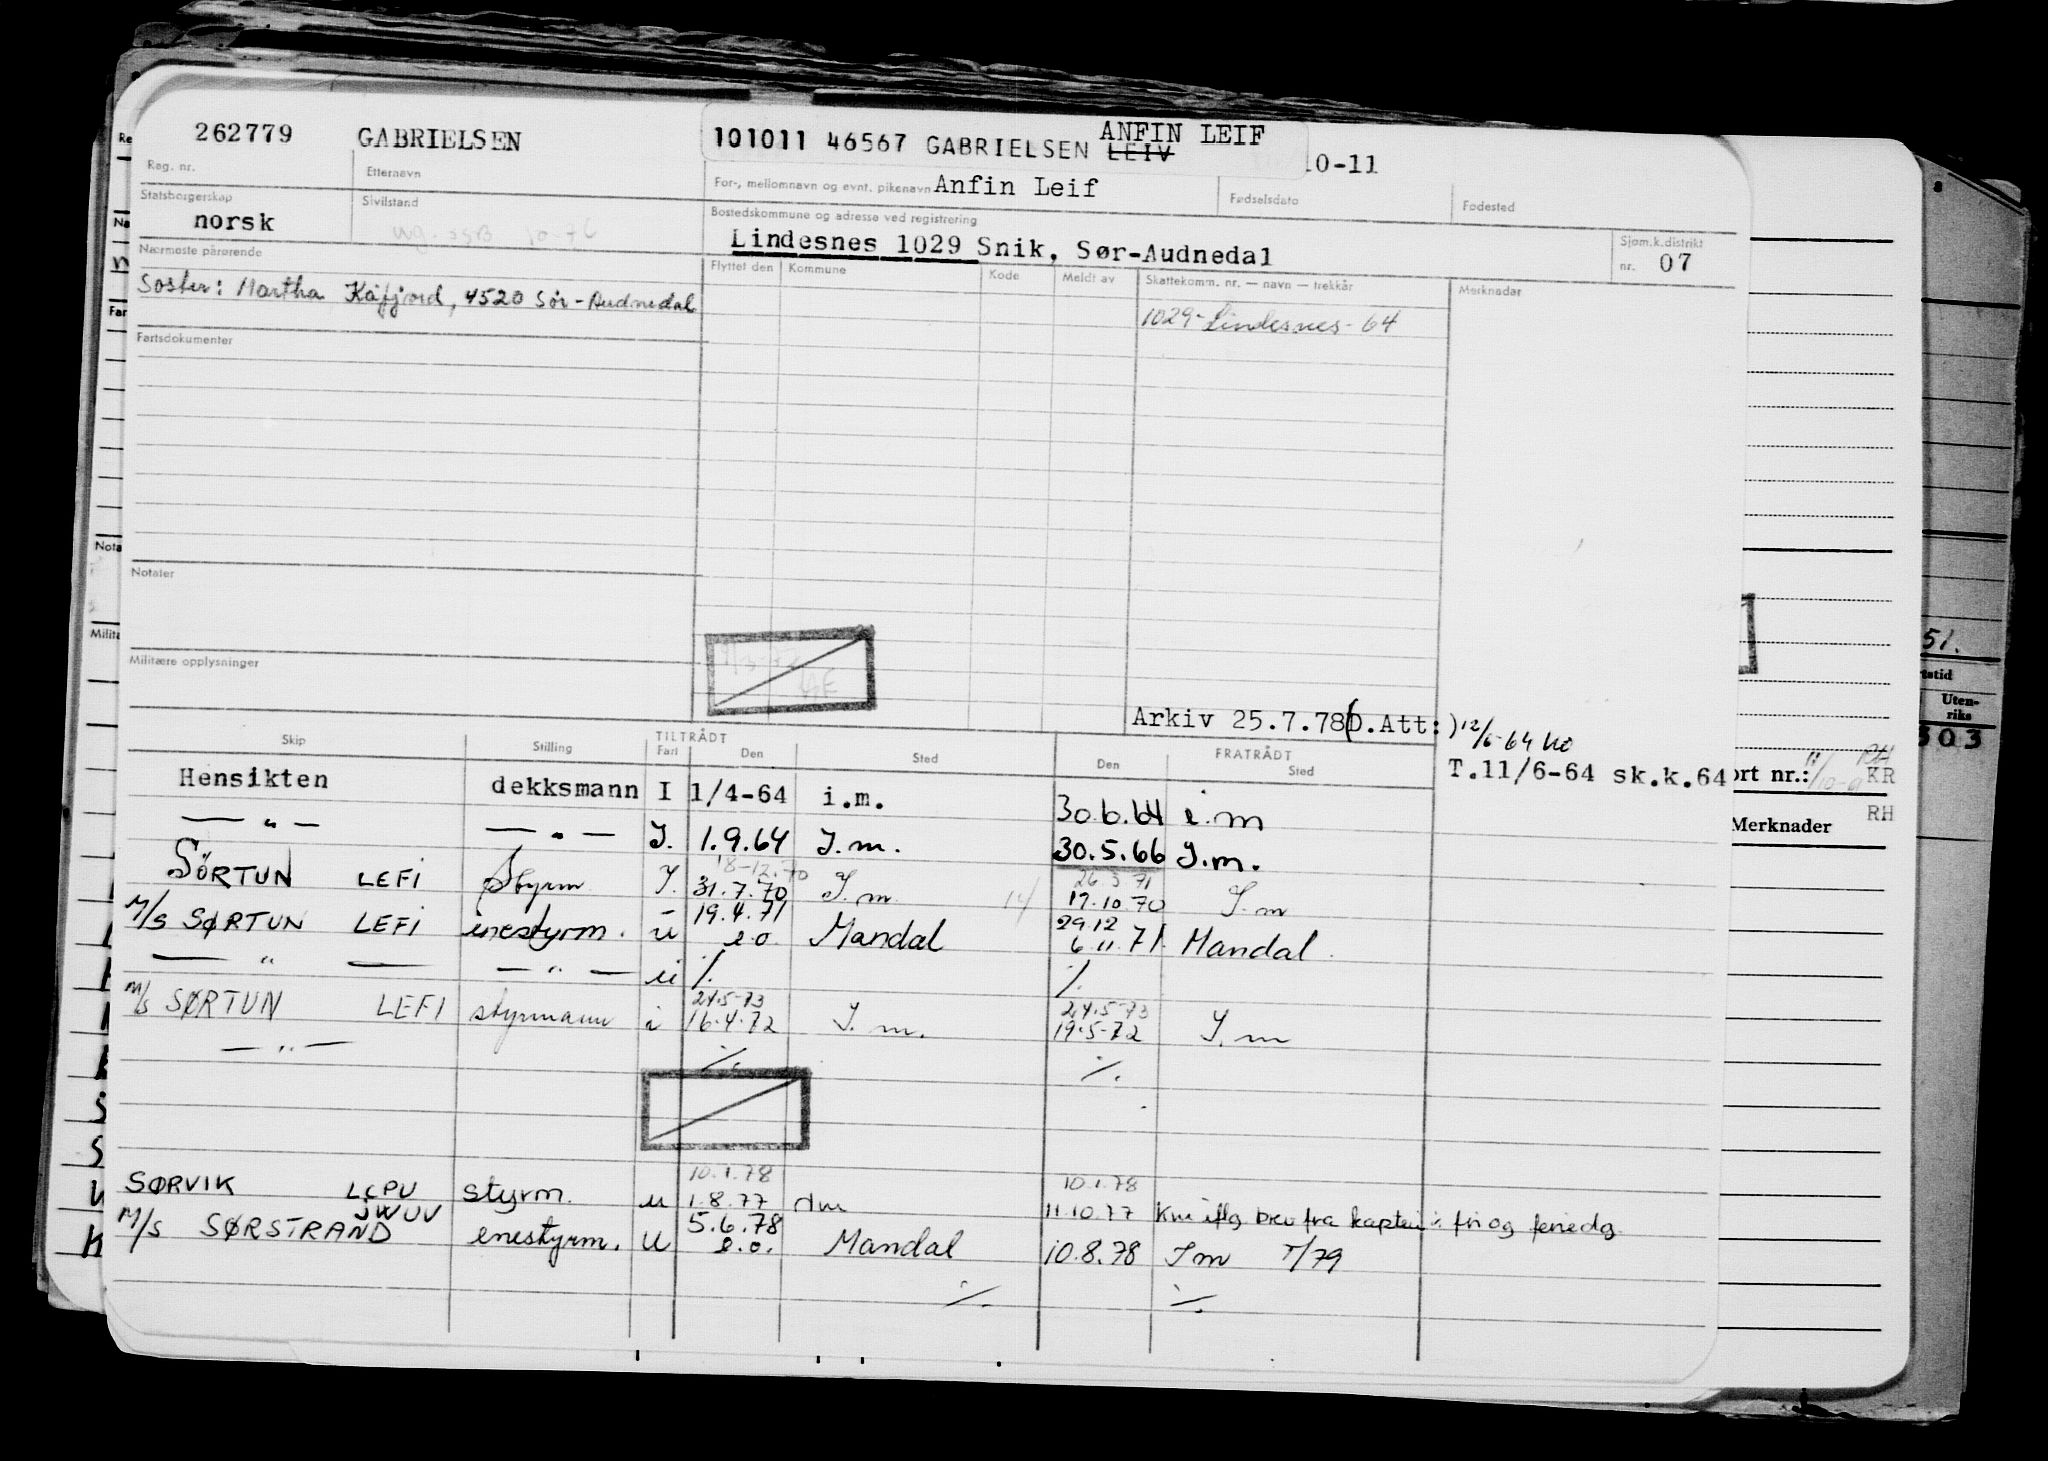 262779 GABRIELSEN 101011 46567 GABRIELSEN LEIV ANFIN LEIF 10-11
Reg. nr. Etternavn For-, mellomnavn og evnt. pikenavn Anfin Leif Fødselsdato Fødested
Statsborgerskap Sivilstand Bostedskommune og adresse ved registrering Sjøm.k.distrikt
norsk Lindesnes 1029 Snik, Sør-Audnedal nr. 07
Nærmeste pårørende Flyttet den Kommune Kode Meldt av Skattekomm. nr. — navn — trekkår Merknader
Søster: Martha Kåfjord, 4520 Sör-Audnedal
1029-Lindesnes-64
Fartsdokumenter
Notater
Militære opplysninger
Arkiv 25.7.78(D.Att:) 12/6-64
T.11/6-64 sk.k.64
Skip Stilling TILTRÅDT Fart Den Sted FRATRÅDT Den Sted
Hensikten dekksmann I 1/4-64 i.m. 30.6.64 i.m
— " — — " — I. 1.9.64 I.m. 30.5.66 I.m.
18-12.70 26 3 71
SÖRTUN LEFI Styrm I. 31.7.70 I.m 17.10.70 I.m
19.4.71 29.12
M/S SØRTUN LEFI enestyrm. u e.o. Mandal 6.11.71 Mandal.
— " — — " — u ./. ./.
24.5-73 24.5-73
M/S SØRTUN LEFI styrmann i 16.4.72 I.m. 19.5-72 I.m
— " — ./. ./.
10.1.78 10.1.78
SØRVIK LCPU styrm. u 1.8.77 11.10.77 brev fra kaptein
JWUV 5.6.78
M/S SØRSTRAND enestyrm. U e.o. Mandal 10.8.78 I m /79
./. ./.
51.
Uten-
riks
303
ort nr.: KR
RH
Merknader